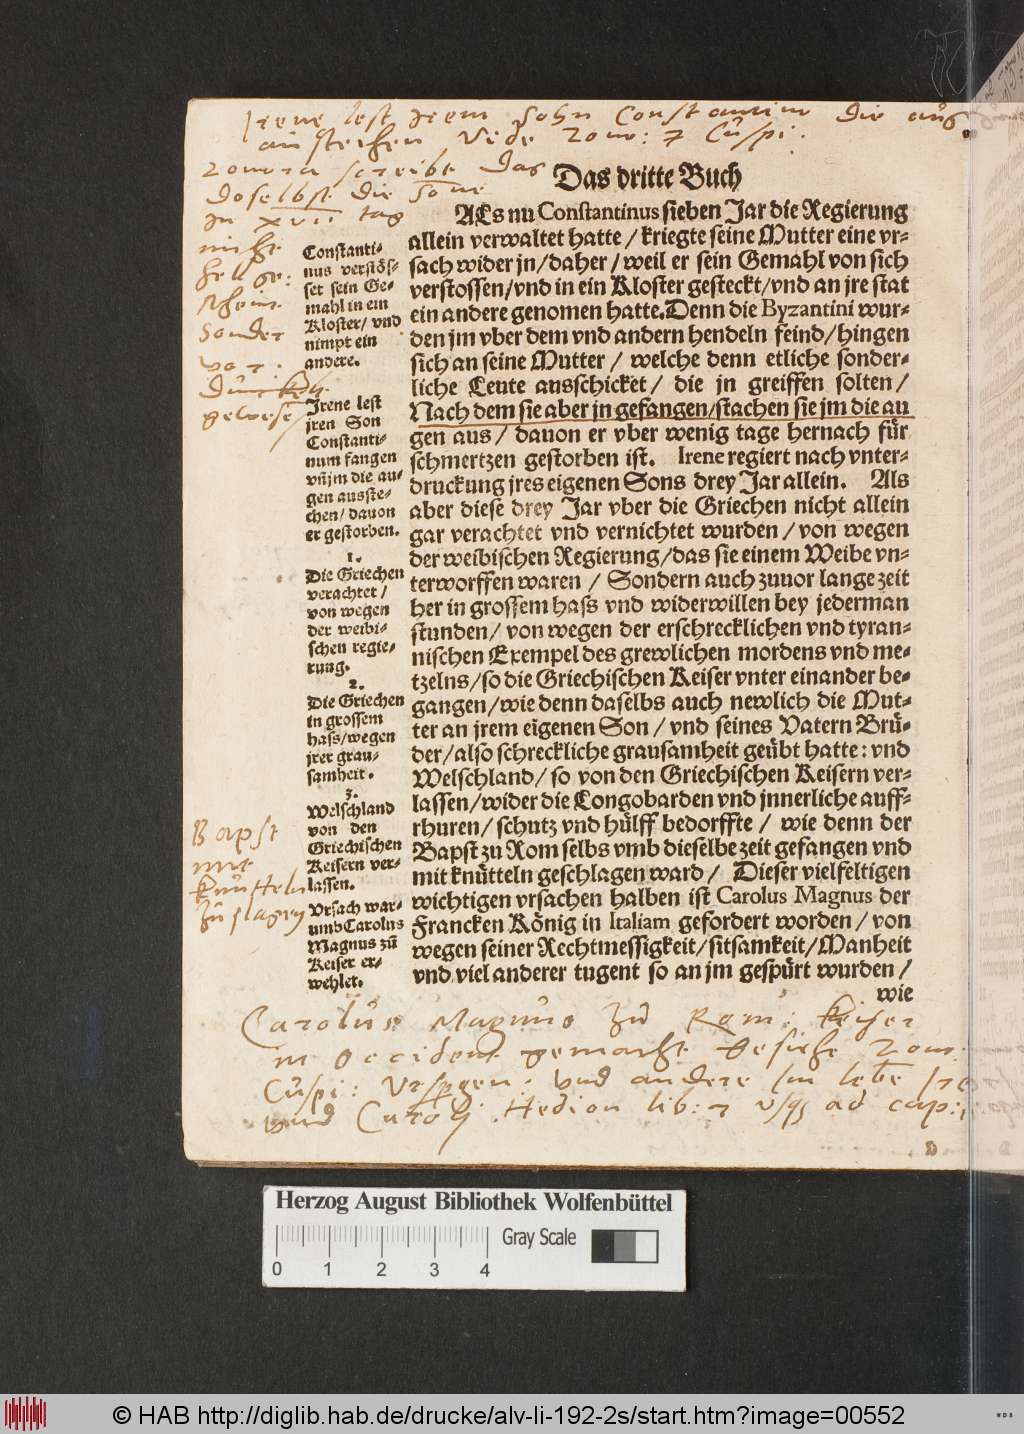 Irene lest Irem Sohn Constantino die aug
ausstechen Vide Zona: & Cuspi:
Zonora schreibt Das
Doselbst die Sonne
In XVII tag
nicht
hell ge:
scheine
Sonder
gewese
Das dritte Buch
ALs nu Constantinus sieben Jar die Regierung
allein verwaltet hatte / kriegte seine Mutter eine vr-
sach wider jn/daher/weil er sein Gemahl von sich
verstossen/vnd in ein Kloster gesteckt/vnd an jre stat
ein andere genomen hatte. Denn die Byzantini wur-
den jm vber dem vnd andern hendeln feind/hingen
sich an seine Mutter / welche denn etliche sonder-
liche Leute ausschicket / die jn greiffen solten /
Nach dem sie aber jn gefangen/stachen sie jm die au
gen aus / dauon er vber wenig tage hernach für
schmertzen gestorben ist. Irene regiert nach vnter-
druckung jres eigenen Sons drey Jar allein. Als
aber diese drey Jar vber die Griechen nicht allein
gar verachtet vnd vernichtet wurden / von wegen
der weibischen Regierung/das sie einem Weibe vn-
terworffen waren / Sondern auch zuuor lange zeit
her in grossem hass vnd widerwillen bey jederman
stunden / von wegen der erschrecklichen vnd tyran-
nischen Exempel des grewlichen mordens vnd me-
tzelns/so die Griechischen Keiser vnter einander be-
gangen/wie denn daselbs auch newlich die Mut-
ter an jrem eigenen Son / vnd seines Vatern Brü-
der/also schreckliche grausamheit geübt hatte: vnd
Welschland/so von den Griechischen Keisern ver-
lassen/wider die Longobarden vnd jnnerliche auff-
rhuren/schutz vnd hülff bedorffte / wie denn der
Bapst zu Rom selbs vmb dieselbe zeit gefangen vnd
mit knütteln geschlagen ward / Dieser vielfeltigen
wichtigen vrsachen halben ist Carolus Magnus der
Francken König in Italiam gefordert worden / von
wegen seiner Rechtmessigkeit/sitsamkeit/Manheit
vnd viel anderer tugent so an jm gespürt wurden /
wie
Constanti-
nus verstös-
set sein Ge-
mahl in ein
Kloster/ vnd
nimpt ein
andere.
Irene lest
jren Son
Constanti-
num fangen
vñ jm die au-
gen ausste-
chen/dauon
er gestorben.
1.
Die Griechen
verachtet /
von wegen
der weibi-
schen regie-
rung.
2.
Die Griechen
in grossem
hass/wegen
jrer grau-
samheit.
3.
Welschland
von den
Griechischen
Keisern ver-
lassen.
Vrsach war-
umb Carolus
Magnus zů
Keiser er-
wehlet.
Bapst
mit
knutteln
zu slagen
Carolus Magnus zu Rom: keiser
in Occident gemacht besiehe Zona:
Cuspi: Vrspergen: vnd andere Im lebē
vnd Caroli. Hedion lib: vsq3 ad cap:
Herzog August Bibliothek Wolfenbüttel
Gray Scale
0 1 2 3 4
© HAB http://diglib.hab.de/drucke/alv-li-192-2s/start.htm?image=00552